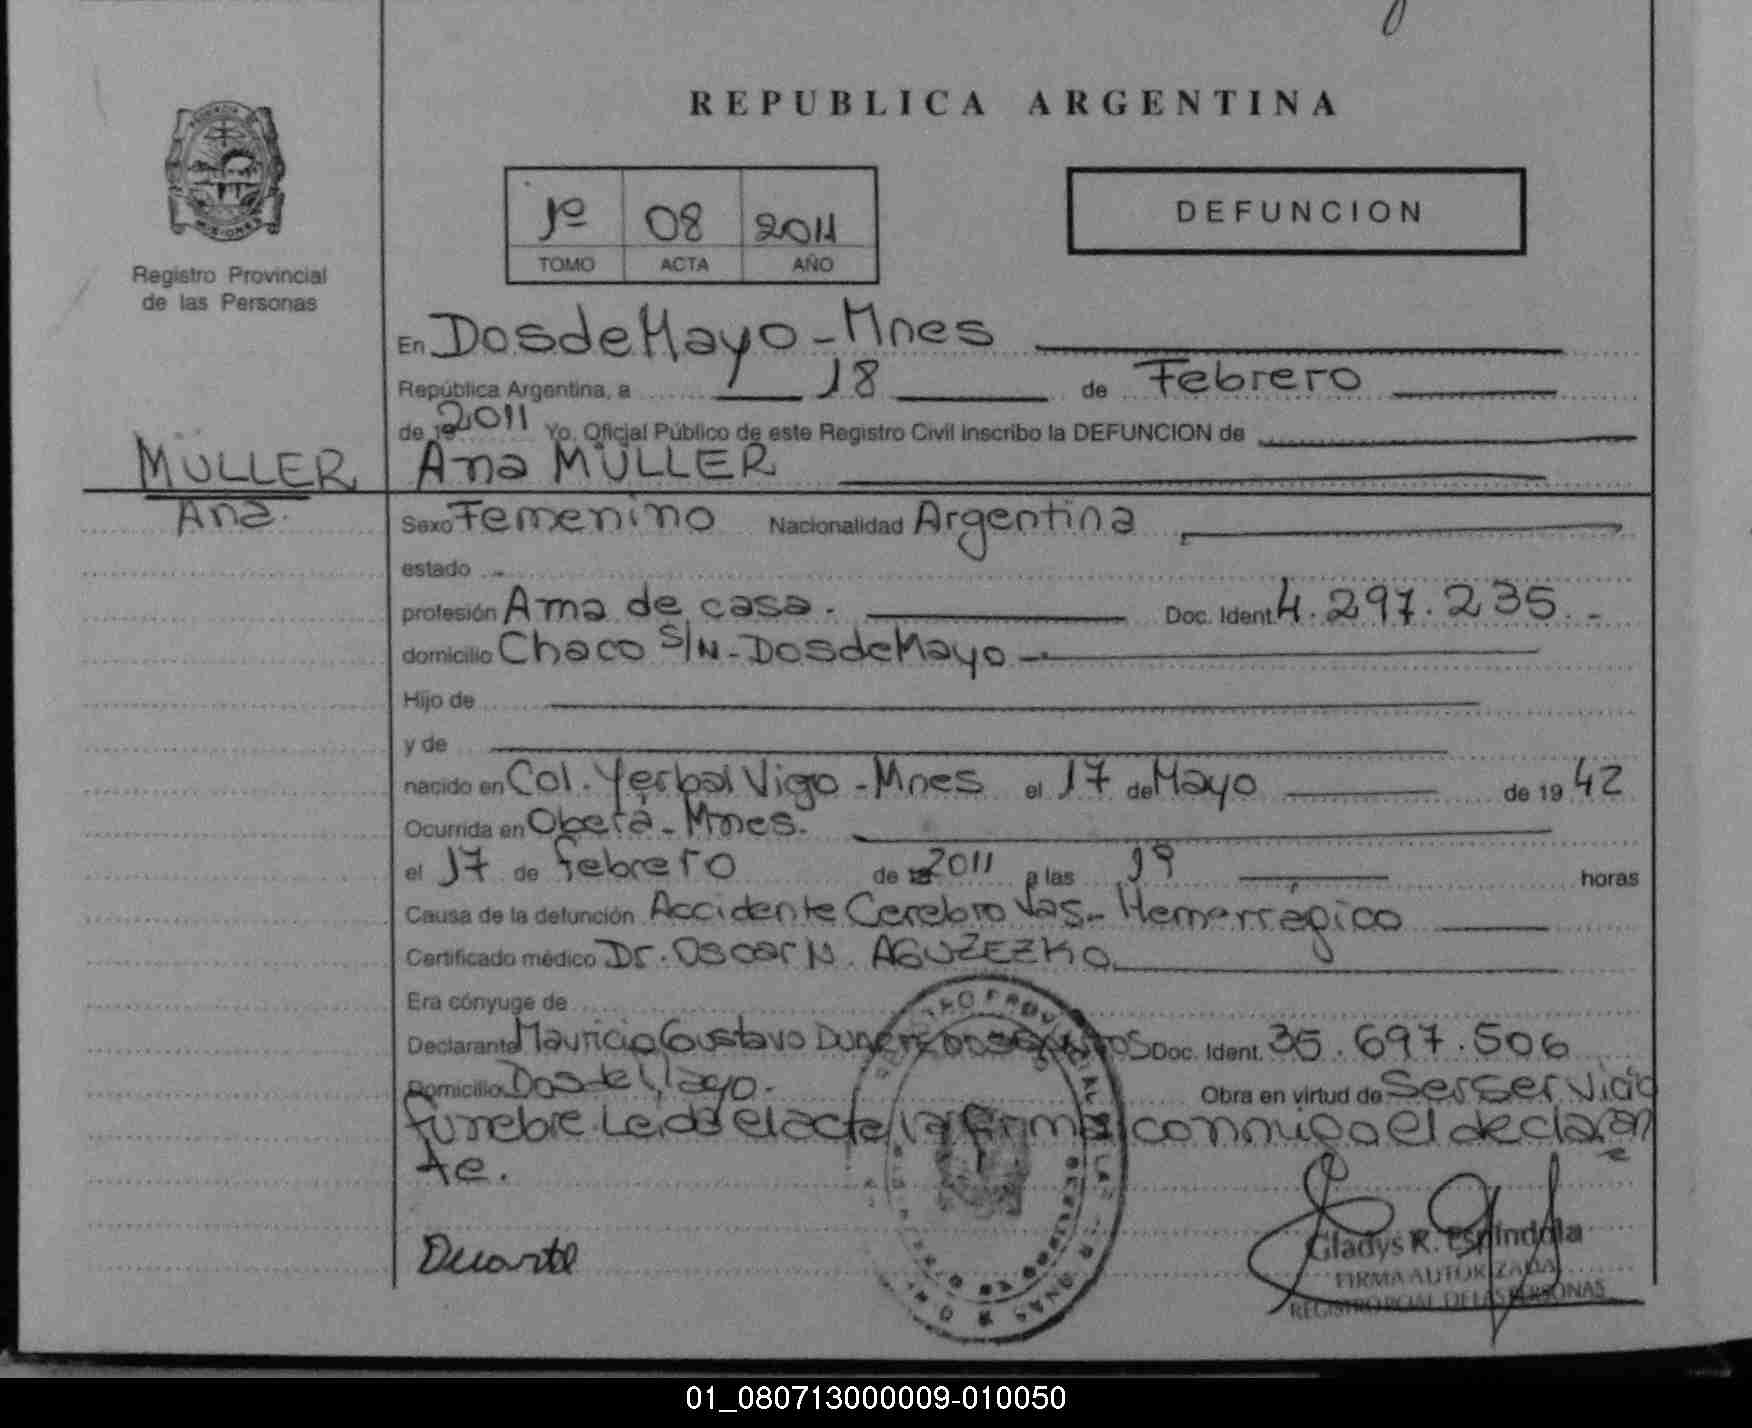 REPUBLICA ARGENTINA
1º 08 2011
TOMO ACTA AÑO
DEFUNCION
Registro Provincial
de las Personas
En Dos de Mayo - Mnes
República Argentina, a 18 de Febrero
de 2011 Yo, Oficial Público de este Registro Civil inscribo la DEFUNCION de
MULLER Ana MULLER
Ana.
Sexo Femenino Nacionalidad Argentina
estado
profesión Ama de casa. Doc. Ident. 4.297.235.-
domicilio Chaco S/N - Dos de Mayo -
Hijo de
y de
nacido en Col. Yerbal Vigo - Mnes el 17 de Mayo de 1942
Ocurrida en Oberá - Mnes.
el 17 de febrero de 2011 a las 19 horas
Causa de la defunción Accidente Cerebro Vas- Hemorrágico
Certificado médico Dr. Oscar N.
Era cónyuge de
Declarante Mauricio Gustavo Doc. Ident. 35.697.506
Domicilio Dos de Mayo. Obra en virtud de Ser Servicio
funebre. Leida el acta la firma conmigo el declaran
te.
Duarte
Gladys R. Espíndola
FIRMA AUTORIZADA
REGISTRO PCIAL. DE LAS PERSONAS
01_080713000009-010050